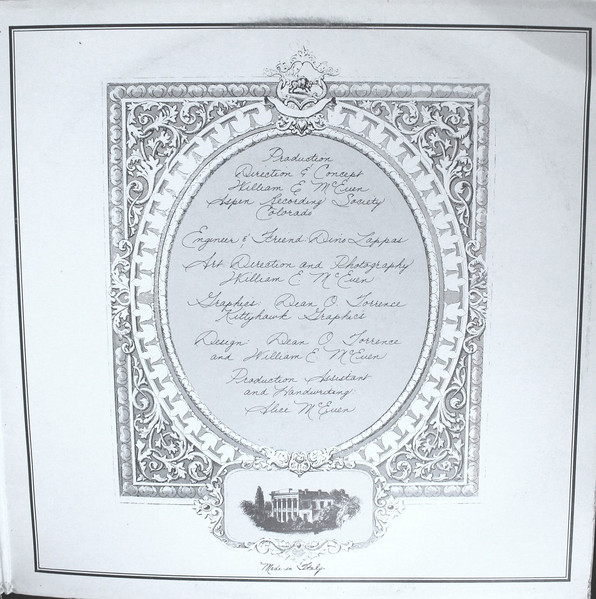 Production
Direction & Concept
William E McEuen
Aspen Recording Society
Colorado
Engineer & Friend Dino Lappas
Art Direction and Photography
William E McEuen
Graphics Dean O. Torrence
Kittyhawk Graphics
Design Dean O Torrence
and William E McEuen
Production Assistant
and Handwriting
Alice McEuen
Made in Italy